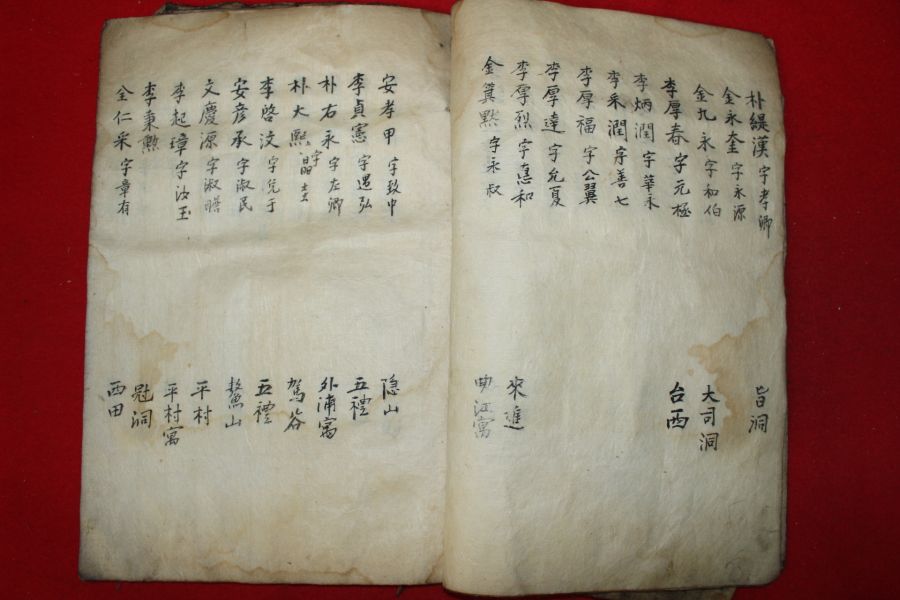 朴緹漢 字孝卿 旨洞
金永奎 字永源
金九永 字和伯 大司洞
李厚春 字元極 台西
李炳潤 字華永
李采潤 字善七
李厚福 字公翼
李厚達 字允夏
李厚烈 字憙和 來進
金箕默 字永叔 曲江寓
安孝甲 字致中 隐山
李貞憲 字遇弘 五禮
朴右永 字左卿 外浦寓
朴大熙 字晶 駕谷
李啓汶 字 于 五禮
安彦承 字淑民 鰲山
文慶源 字淑瞻 平村
李起璋 字汝玉 平村寓
李秉勲 洞
全仁采 字章有 西田